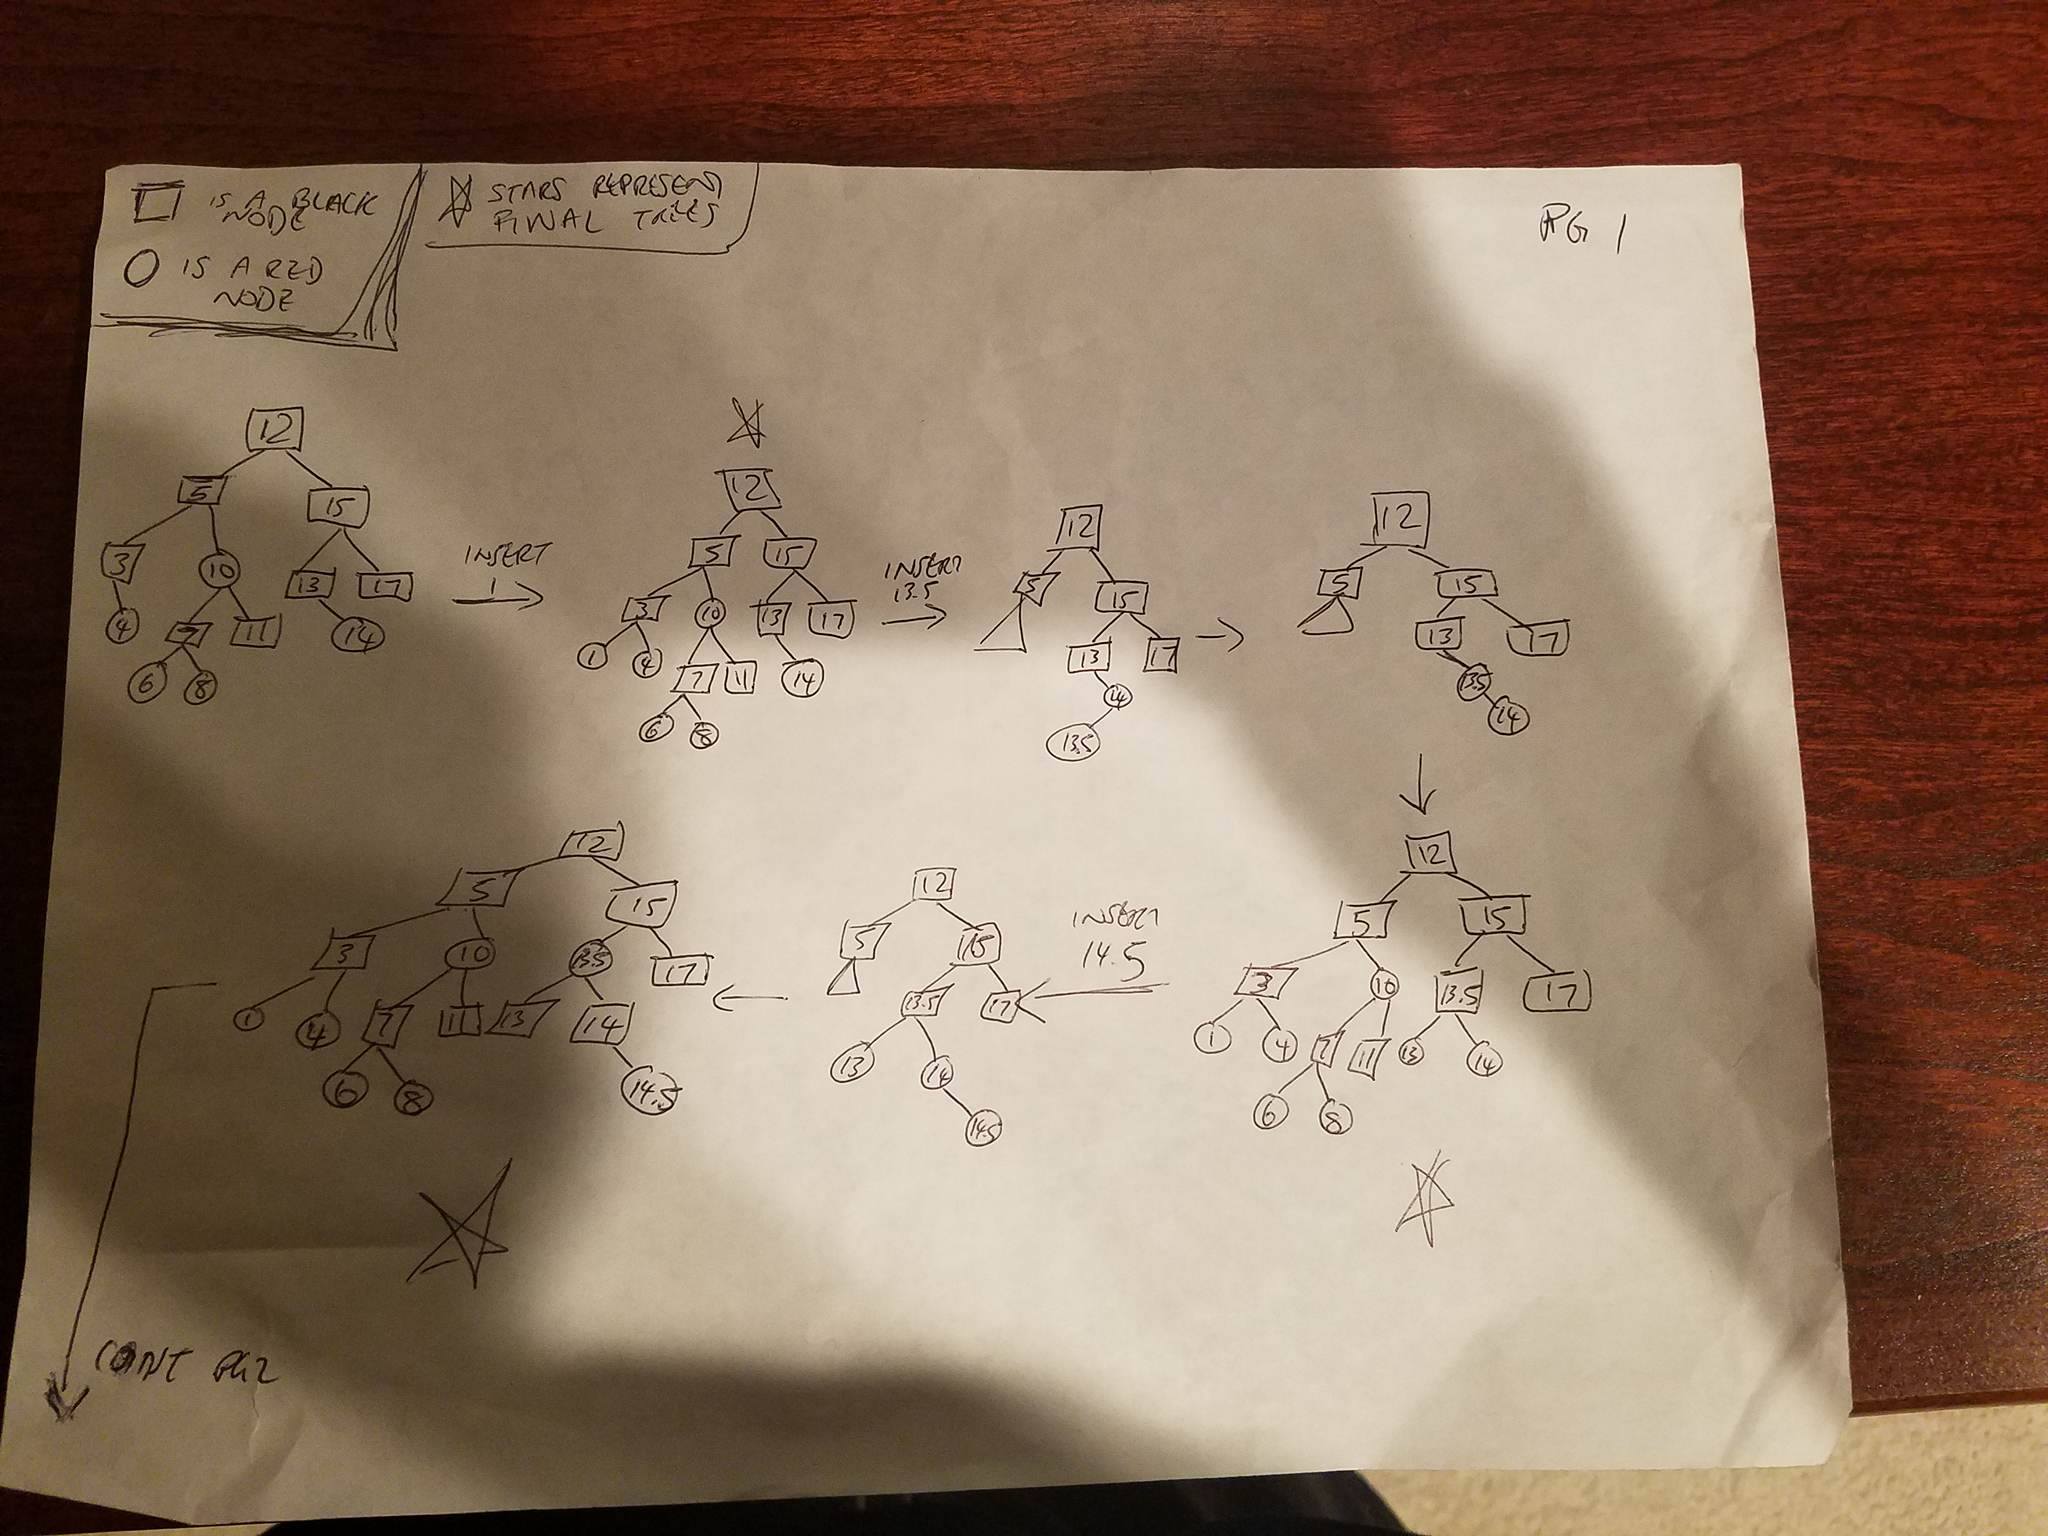 IS A BLACK
NODE
IS A RED
NODE
STARS REPRESENT
FINAL TREES
PG 1
12
5 15
3 10 13 17
4 7 11 14
6 8
INSERT
1
12
5 15
3 10 13 17
1 4 7 11 14
6 8
INSERT
13.5
12
5 15
13 17
14
13.5
12
5 15
13 17
13.5
14
12
5 15
3 10 13.5 17
1 4 7 11 13 14
6 8
INSERT
14.5
12
5 15
13.5 17
13 14
14.5
12
5 15
3 10 13.5 17
1 4 7 11 13 14
6 8 14.5
CONT PG2